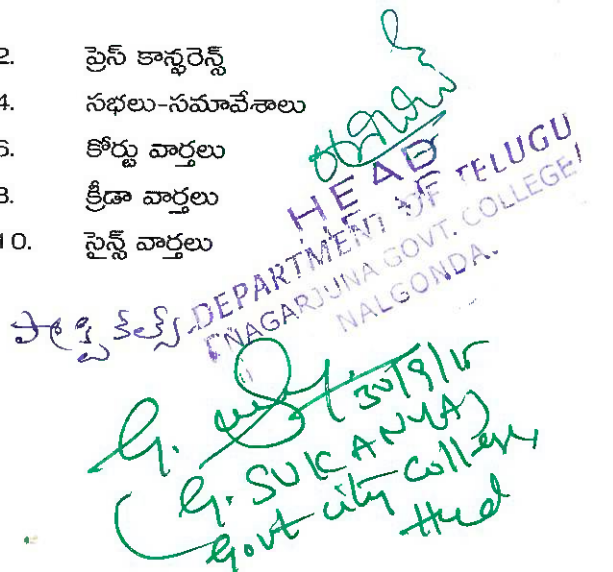 2. ప్రెస్ కాన్ఫరెన్స్
4. సభలు-సమావేశాలు
6. కోర్టు వార్తలు
8. క్రీడా వార్తలు
10. సైన్స్ వార్తలు
HEAD
DEPARTMENT OF TELUGU
NAGARJUNA GOVT. COLLEGE
NALGONDA.
ప్రాక్టికల్స్
G. 30/9/15
(G. SUKANYA)
Govt city College
Hyd